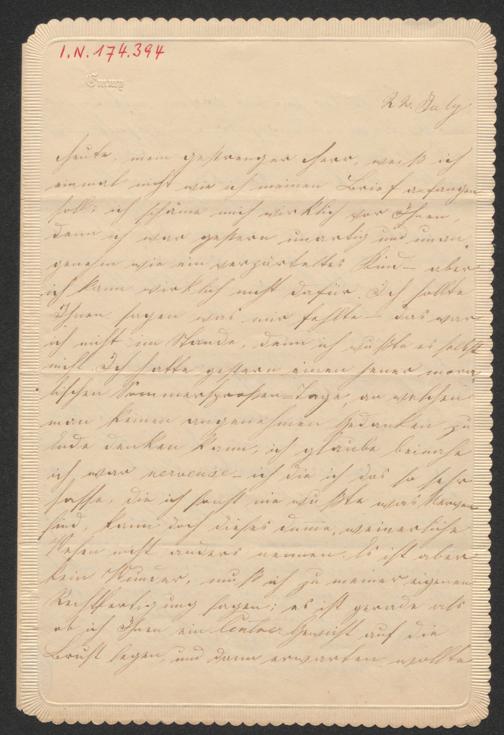 I.N. 174.394
22. July
Heute, mein gestrenger Herr, weiß ich
einmal nicht wie ich meinen Brief anfangen
soll; ich schäme mich wirklich vor Ihnen,
denn ich war gestern unartig und unan-
genehm wie ein verzärteltes Kind – aber
ich kann wirklich nicht dafür. Ich sollte
Ihnen sagen was mir fehlte – das war
ich nicht im Stande, denn ich wußte es selbst
nicht. Ich hatte gestern einen jener mora-
lischen Sommersprossen-Tage, an welchen
man keinen angenehmen Gedanken zu
Ende denken kann, ich glaube beinahe
ich war nerveuse – ich die ich das so sehr
hasse, die ich sonst nie wußte was Nerven
sind, kann doch dieses dumme, weinerliche
Wesen nicht anders nennen. Es ist aber
kein Wunder, muß ich zu meiner eigenen
Rechtfertigung sagen; es ist gerade als
ob ich Ihnen ein Gewicht auf die
Brust legen, und dann erwarten wollte